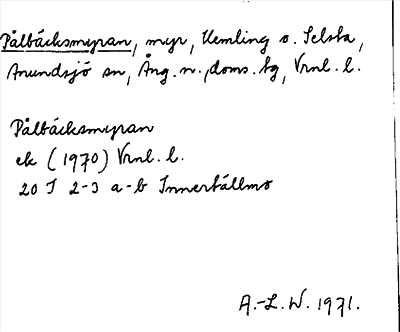 Pålbäcksmyran, myr, Kemling o. Selsta,
Anundsjö sn, Ång. n., doms. hg, Vrnl. l.
Pålbäcksmyran
ek (1970) Vrnl. l.
20 I 2-3 a-b Innertällmo
A.-L. W. 1971.